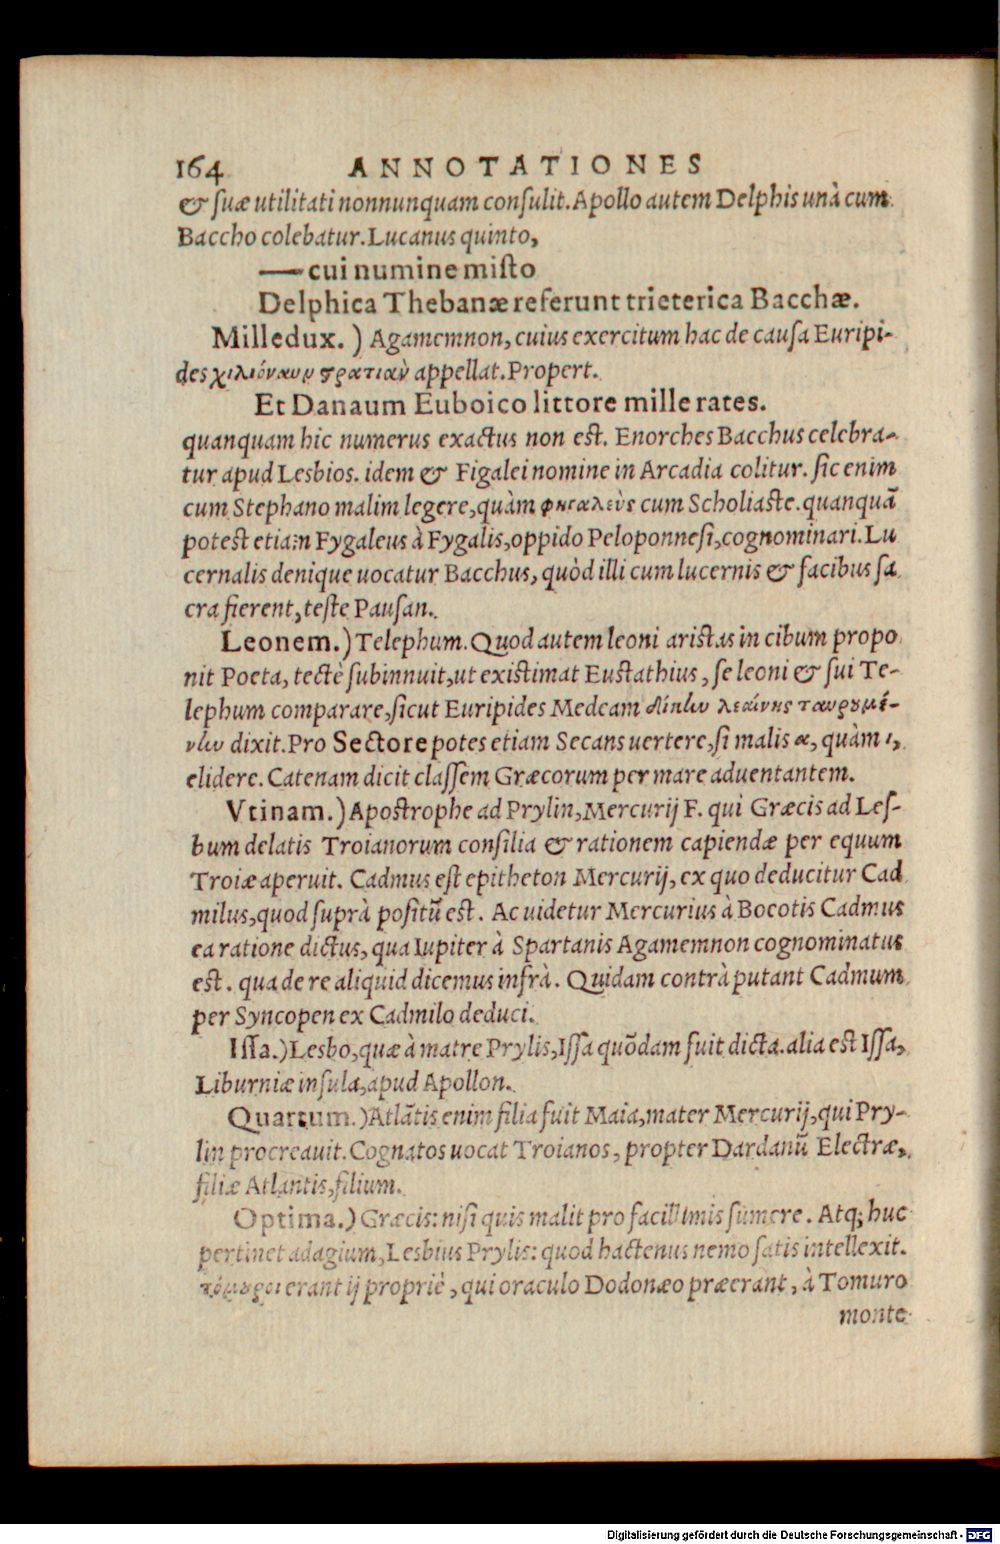 164 ANNOTATIONES
& ſuæ utilitati nonnunquam conſulit. Apollo autem Delphis unà cum
Baccho colebatur. Lucanus quinto,
— cui numine miſto
Delphica Thebanæ referunt trieterica Bacchæ.
Milledux.) Agamemnon, cuius exercitum hac de cauſa Euripi-
des χιλιόναυν στρατιὰν appellat. Propert.
Et Danaum Euboico littore mille rates.
quanquam hic numerus exactus non est. Enorches Bacchus celebra-
tur apud Lesbios. idem & Figalei nomine in Arcadia colitur. ſic enim
cum Stephano malim legere, quàm φηγαλεὺς cum Scholiaste. quanquã
potest etiam Fygaleus à Fygalis, oppido Peloponneſi, cognominari. Lu
cernalis denique uocatur Bacchus, quòd illi cum lucernis & facibus ſa
cra fierent, teſte Pauſan.
Leonem.) Telephum. Quod autem leoni aristas in cibum propo
nit Poeta, tectè ſubinnuit, ut existimat Eustathius, ſe leoni & ſui Te-
lephum comparare, ſicut Euripides Medeam δίκλω λεαίνης ταυρουμέ-
νλω dixit. Pro Sectore potes etiam Secans uertere, ſi malis α, quàm ι,
elidere. Catenam dicit claſſem Græcorum per mare aduentantem.
Vtinam.) Apostrophe ad Prylin, Mercurij F. qui Græcis ad Leſ-
bum delatis Troianorum conſilia & rationem capiendæ per equum
Troiæ aperuit. Cadmus eſt epitheton Mercurij, ex quo deducitur Cad
milus, quod ſuprà poſitũ est. Ac uidetur Mercurius à Bœotis Cadmus
ea ratione dictus, qua Iupiter à Spartanis Agamemnon cognominatus
eſt. qua de re aliquid dicemus infrà. Quidam contrà putant Cadmum
per Syncopen ex Cadmilo deduci.
Iſſa.) Lesbo, quæ à matre Prylis, Iſſa quõdam fuit dicta. alia eſt Iſſa,
Liburniæ inſula, apud Apollon.
Quartum.) Atlãtis enim filia fuit Maia, mater Mercurij, qui Pry-
lin procreauit. Cognatos uocat Troianos, propter Dardanũ Electræ,
filiæ Atlantis, filium.
Optima.) Græcis: niſi quis malit pro facillimis ſumere. Atq; huc
pertinet adagium, Lesbius Prylis: quod hactenus nemo ſatis intellexit.
τόμουροι erant ij propriè, qui oraculo Dodonæo præerant, à Tomuro
monte
Digitalisierung gefördert durch die Deutsche Forschungsgemeinschaft - DFG